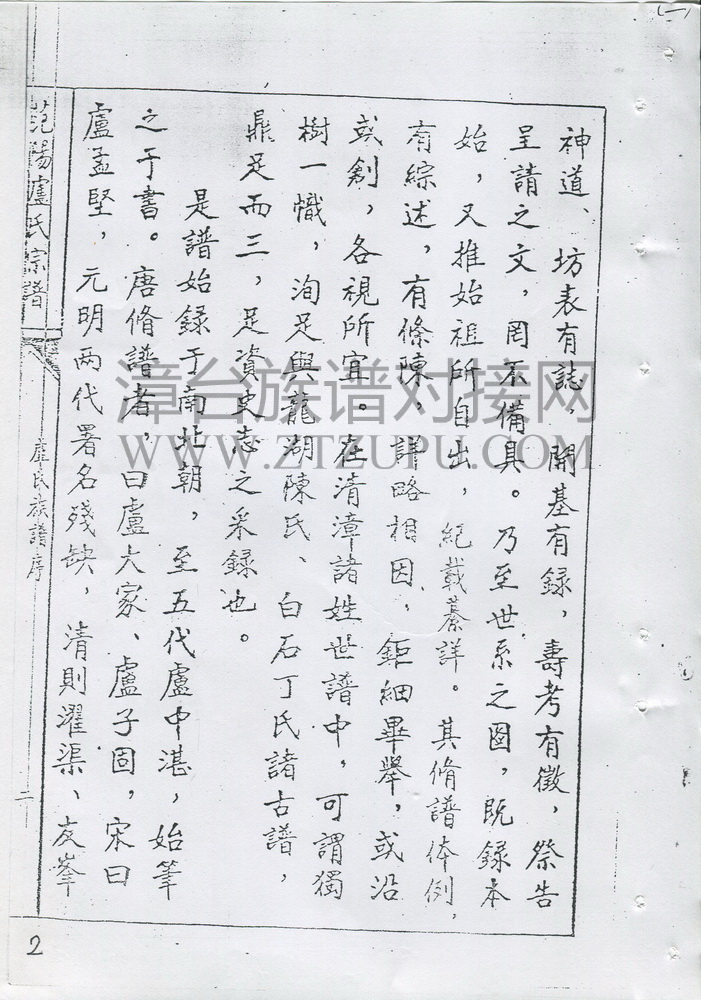 (一)
神道、坊表有誌，開基有録，壽考有徵，祭告
呈請之文，罔不備具。乃至世系之圖，既録本
始，又推始祖所自出，紀載綦詳。其脩譜体例，
有綜述，有條陳，詳略相因，鉅細畢舉，或沿
或創，各視所宜。在清漳諸姓世譜中，可謂獨
樹一幟，洵足與龍湖陳氏、白石丁氏諸古譜，
鼎足而三，足資史志之采録也。
是譜始録于南北朝，至五代盧中湛，始筆
之于書。唐脩譜者，曰盧大家、盧子固，宋曰
盧孟堅，元明兩代署名殘缺，清則濯渠、友峯
范陽盧氏宗譜
盧氏族譜序
二
2
漳台族谱对接网
WWW.ZTZUPU.COM